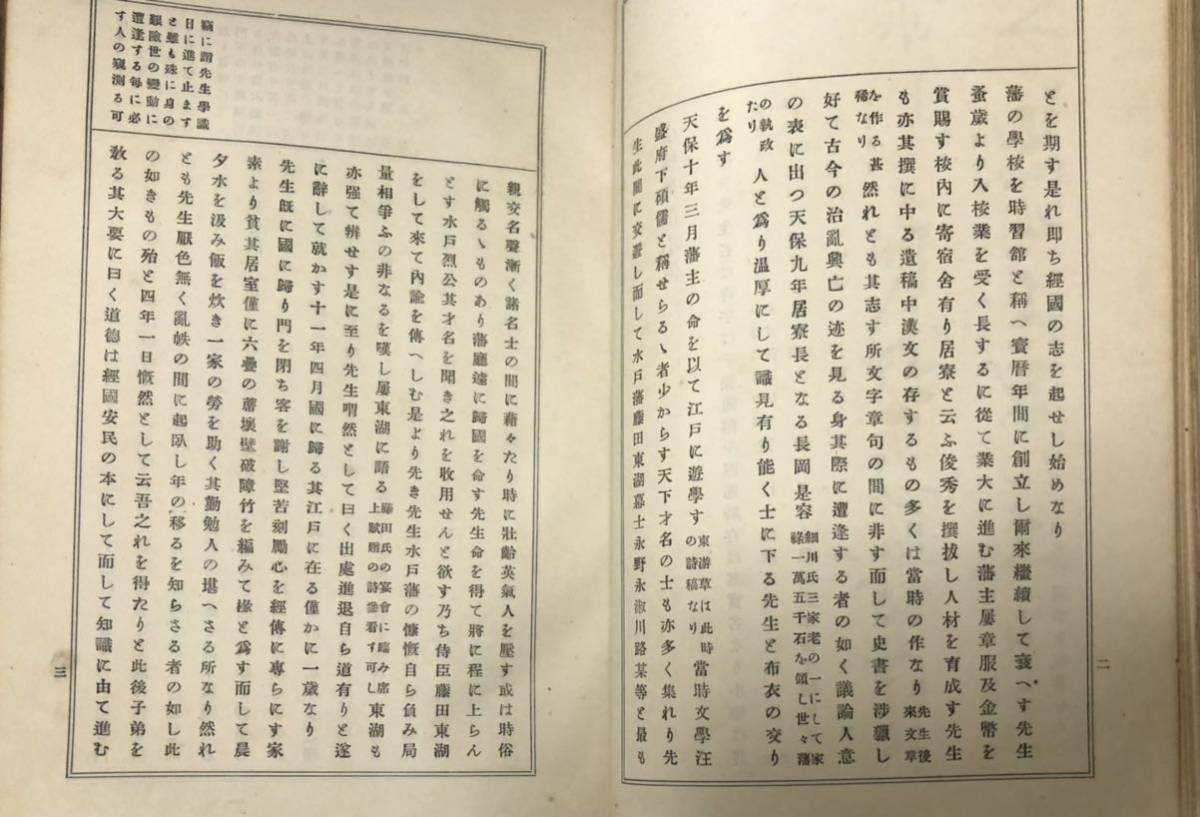 とを期す是れ即ち經國の志を起せし始めなり
藩の學校を時習館と稱へ寶曆年間に創立し爾來繼續して衰へす先生
蚤歲より入校業を受く長するに從て業大に進む藩主屢章服及金幣を
賞賜す校内に寄宿舍有り居寮と云ふ俊秀を撰拔し人材を育成す先生
も亦其撰に中る遺稿中漢文の存するもの多くは當時の作なり先生後來文章
を作る甚稀なり然れとも其志す所文字章句の間に非す而して史書を涉獵し
好て古今の治亂興亡の迹を見る身其際に遭逢する者の如く議論人意
の表に出つ天保九年居寮長となる長岡是容細川氏三家老の一にして家祿一萬五千石を領し世々藩
の執政たり人と爲り温厚にして識見有り能く士に下る先生と布衣の交り
を爲す
天保十年三月藩主の命を以て江戸に遊學す東游草は此時の詩稿なり當時文學汪
盛府下碩儒と稱せらるゝ者少からす天下才名の士も亦多く集れり先
生此間に交遊し而して水戸藩藤田東湖幕士永野永淑川路某等と最も
二
竊に謂先生學識
日に進て止ます
と雖も殊に身の
艱險世の變動に
遭逢する每に必
す人の窺測る可
親交名聲漸く諸名士の間に藉々たり時に壯齡英氣人を壓す或は時俗
に觸るゝものあり藩廳遽に歸國を命す先生命を得て將に程に上らん
とす水戸烈公其才名を聞き之れを收用せんと欲す乃ち侍臣藤田東湖
をして來て内諭を傳へしむ是より先き先生水戸藩の慷慨自ら負み局
量相爭ふの非なるを嘆し屢東湖に語る藤田氏の宴會に臨み席上賦贈の詩參看す可し東湖も
亦强て辨せす是に至り先生喟然として曰く出處進退自ら道有りと遂
に辭して就かす十一年四月國に歸る其江戸に在る僅かに一歲なり
先生既に國に歸り門を閉ち客を謝し堅苦刻勵心を經傳に專らにす家
素より貧其居室僅に六疊の蓆壞壁破障竹を編みて椽と爲す而して晨
夕水を汲み飯を炊き一家の勞を助く其勤勉人の堪へさる所なり然れ
とも先生厭色無く亂帙の間に起臥し年の移るを知らさる者の如し此
の如きもの殆と四年一日慨然として云吾之れを得たりと此後子弟を
敎る其大要に曰く道德は經國安民の本にして而して知識に由て進む
三